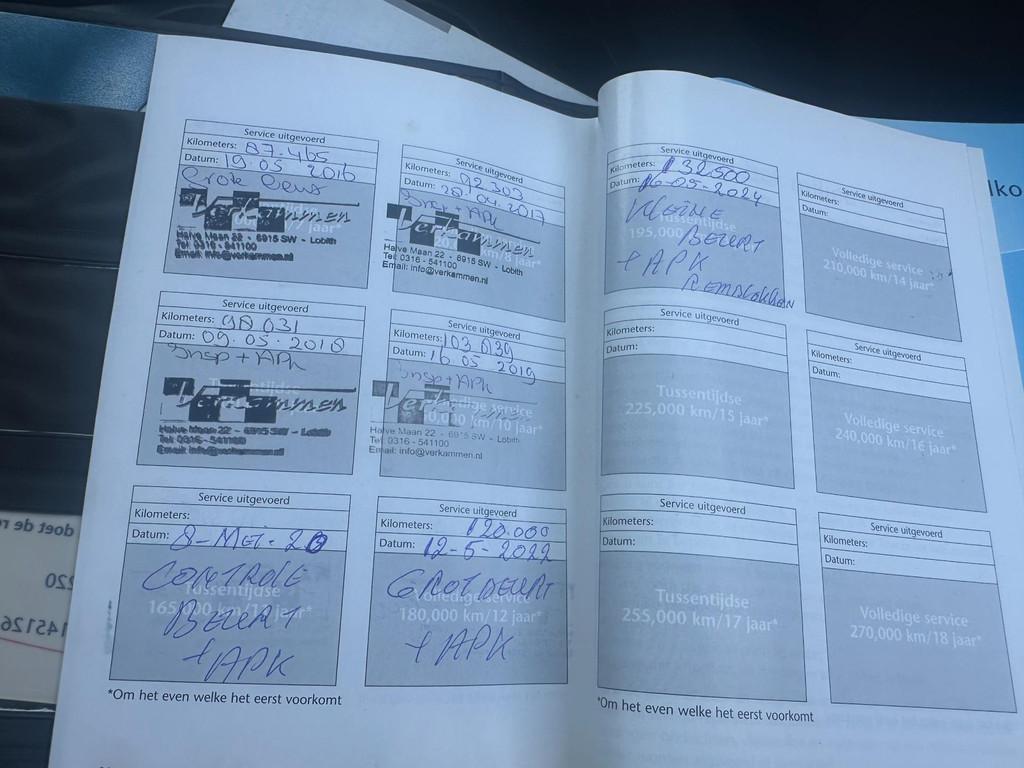 Service uitgevoerd
Kilometers: 87.465
Datum: 19.05.2016
Grote Beurt
Verkammen
jaar*
Halve Maan 22 - 6915 SW - Lobith
Tel: 0316 - 541100
Email: info@verkammen.nl
Service uitgevoerd
Kilometers: 92.303
Datum: 04.2017
Insp + APK
Verkammen
km/8 jaar*
Halve Maan 22 - 6915 SW - Lobith
Tel: 0316 - 541100
Email: info@verkammen.nl
Service uitgevoerd
Kilometers: 98 031
Datum: 09.05.2018
Insp + APK
Verkammen
Halve Maan 22 - 6915 SW - Lobith
Tel: 0316 - 541100
Email: info@verkammen.nl
Service uitgevoerd
Kilometers: 103 039
Datum: 16.05.2019
Insp + APK
Verkammen
km/10 jaar*
Halve Maan 22 - 6915 SW - Lobith
Tel: 0316 - 541100
Email: info@verkammen.nl
Service uitgevoerd
Kilometers:
Datum: 8-MEI-20
CONTROLE
Tussentijdse
BEURT
+ APK
Service uitgevoerd
Kilometers: 120.000
Datum: 12-5-2022
GROT BEURT
Volledige service
180,000 km/12 jaar*
+ APK
*Om het even welke het eerst voorkomt
Service uitgevoerd
Kilometers: 132500
Datum: 16-05-2024
KLEINE
Tussentijdse
195,000
BEURT
+ APK
REMBLOKKEN
Service uitgevoerd
Kilometers:
Datum:
Volledige service
210,000 km/14 jaar*
Service uitgevoerd
Kilometers:
Datum:
Tussentijdse
225,000 km/15 jaar*
Service uitgevoerd
Kilometers:
Datum:
Volledige service
240,000 km/16 jaar*
Service uitgevoerd
Kilometers:
Datum:
Tussentijdse
255,000 km/17 jaar*
Service uitgevoerd
Kilometers:
Datum:
Volledige service
270,000 km/18 jaar*
*Om het even welke het eerst voorkomt
lko
doet de re
220
145126